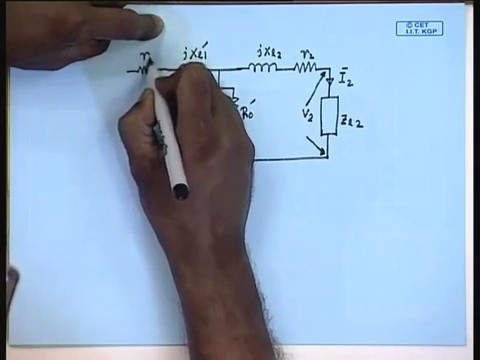 © CET
I.I.T. KGP
jxl1' jxl2 r2
Ī2
R0'
V2
Zl2